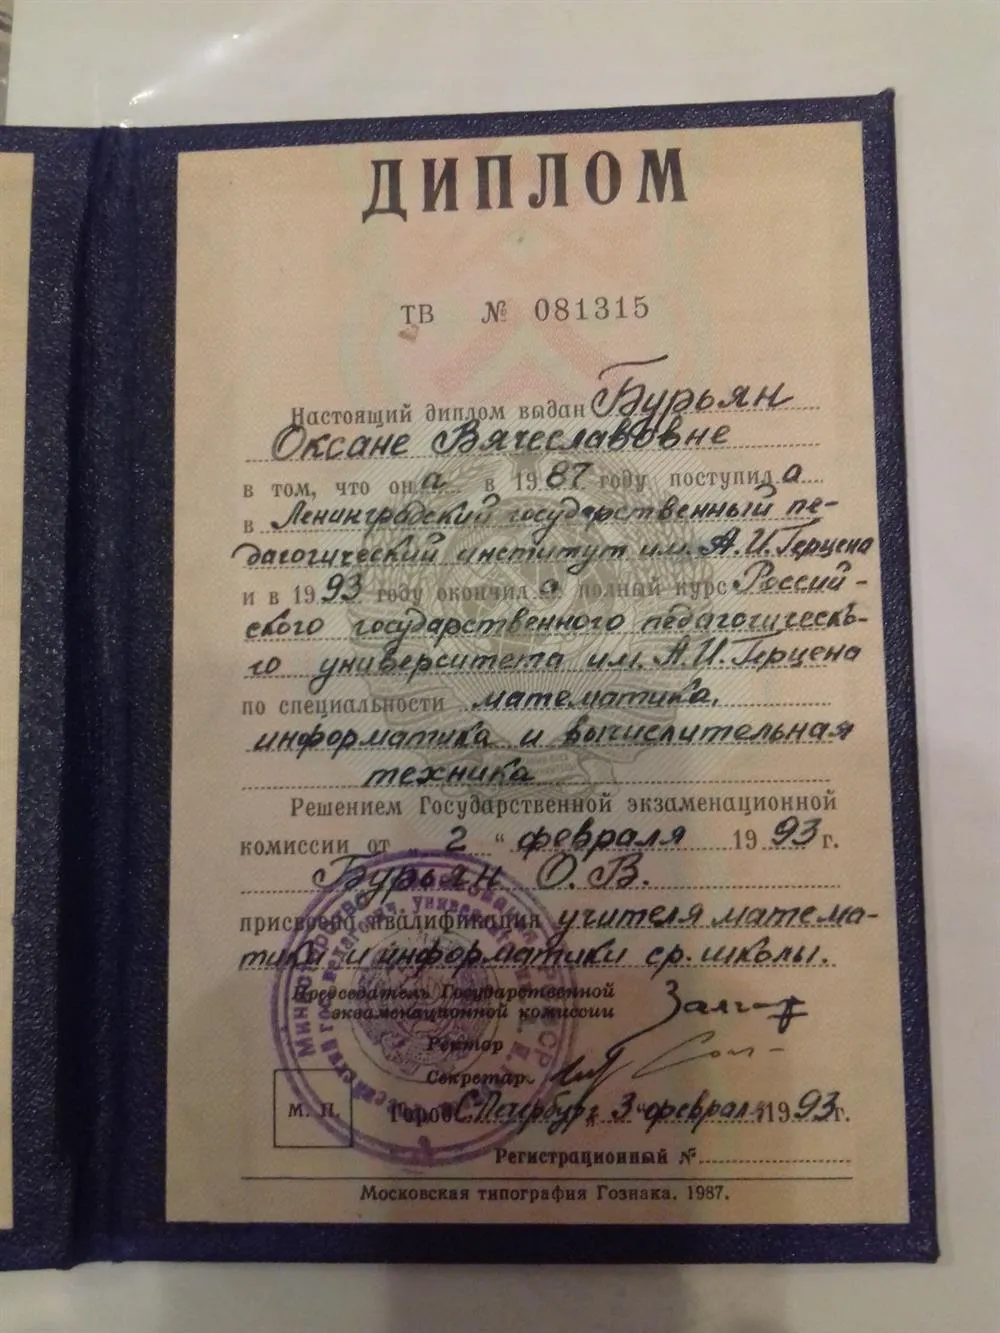 ДИПЛОМ
ТВ № 081315
Настоящий диплом выдан Бурьян
Оксане Вячеславовне
в том, что она в 1987 году поступила
в Ленинградский государственный пе-
дагогический институт им. А.И.Герцена
и в 1993 году окончила полный курс Россий-
ского государственного педагогическо-
го университета им. А.И.Герцена
по специальности математика,
информатика и вычислительная
техника
Решением Государственной экзаменационной
комиссии от „ 2 “ февраля 1993 г.
Бурьян О.В.
присвоена квалификация учителя матема-
тики и информатики ср. школы.
Председатель Государственной
экзаменационной комиссии
Ректор
Секретарь
М. П.
Город С.Петербург „ 3 “ февраля 1993 г.
Регистрационный №
Московская типография Гознака. 1987.